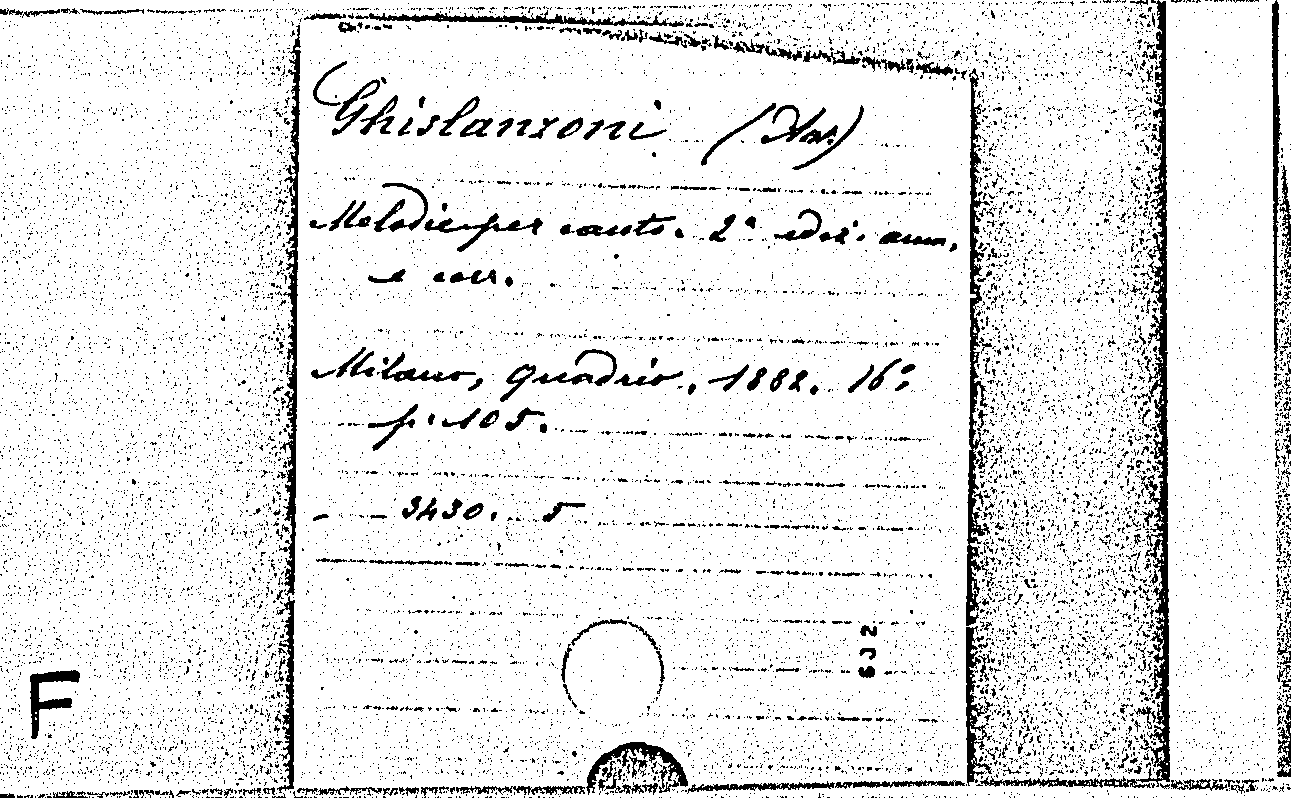 Ghislanzoni (Ant.)
Melodie per canto. 2ª ediz. aum.
e corr.
Milano, Quadrio, 1882. 16°,
p. 105.
3430. 5
6J2
F